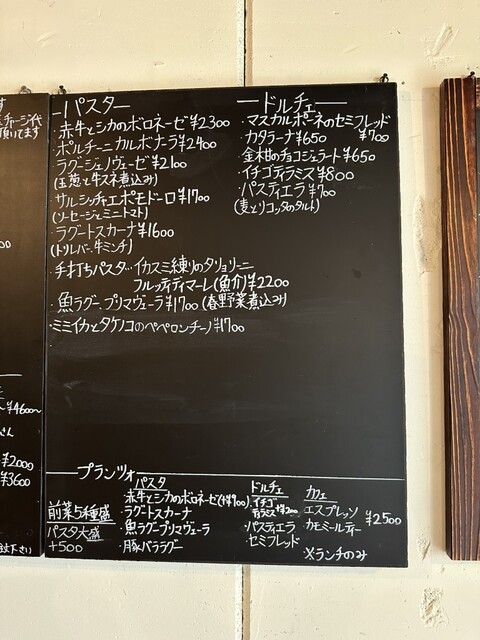 す
チャージ代
頂いてます
パスタ
・赤牛とシカのボロネーゼ ¥2300
ポルチーニカルボナーラ ¥2400
ラグージェノヴェーゼ ¥2100
(玉葱と牛スネ煮込み)
サルシッチャエポモドーロ ¥1700
(ソーセージとミニトマト)
ラグートスカーナ ¥1600
(トリレバー、牛ミンチ)
・手打ちパスタ イカスミ練りのタリオリーニ
フルッティディマーレ(魚介) ¥2200
・魚ラグープリマヴェーラ ¥1700 (春野菜煮込み)
・ミミイカとタケノコのペペロンチーノ ¥1700
ドルチェ
・マスカルポーネのセミフレッド
¥700
・カタラーナ ¥650
・金柑のチョコジェラート ¥650
・イチゴティラミス ¥800
・パスティエラ ¥700
(麦とリコッタのタルト)
¥4600〜
¥2000
¥3600
下さい
プランツォ
前菜5種盛
パスタ大盛
+500
パスタ
・赤牛とシカのボロネーゼ(+¥900)
・ラグートスカーナ
・魚ラグープリマヴェーラ
・豚バララグー
ドルチェ
・イチゴ
ティラミス +¥200
・パスティエラ
・セミフレッド
カフェ
エスプレッソ
カモミールティー
¥2500
※ランチのみ